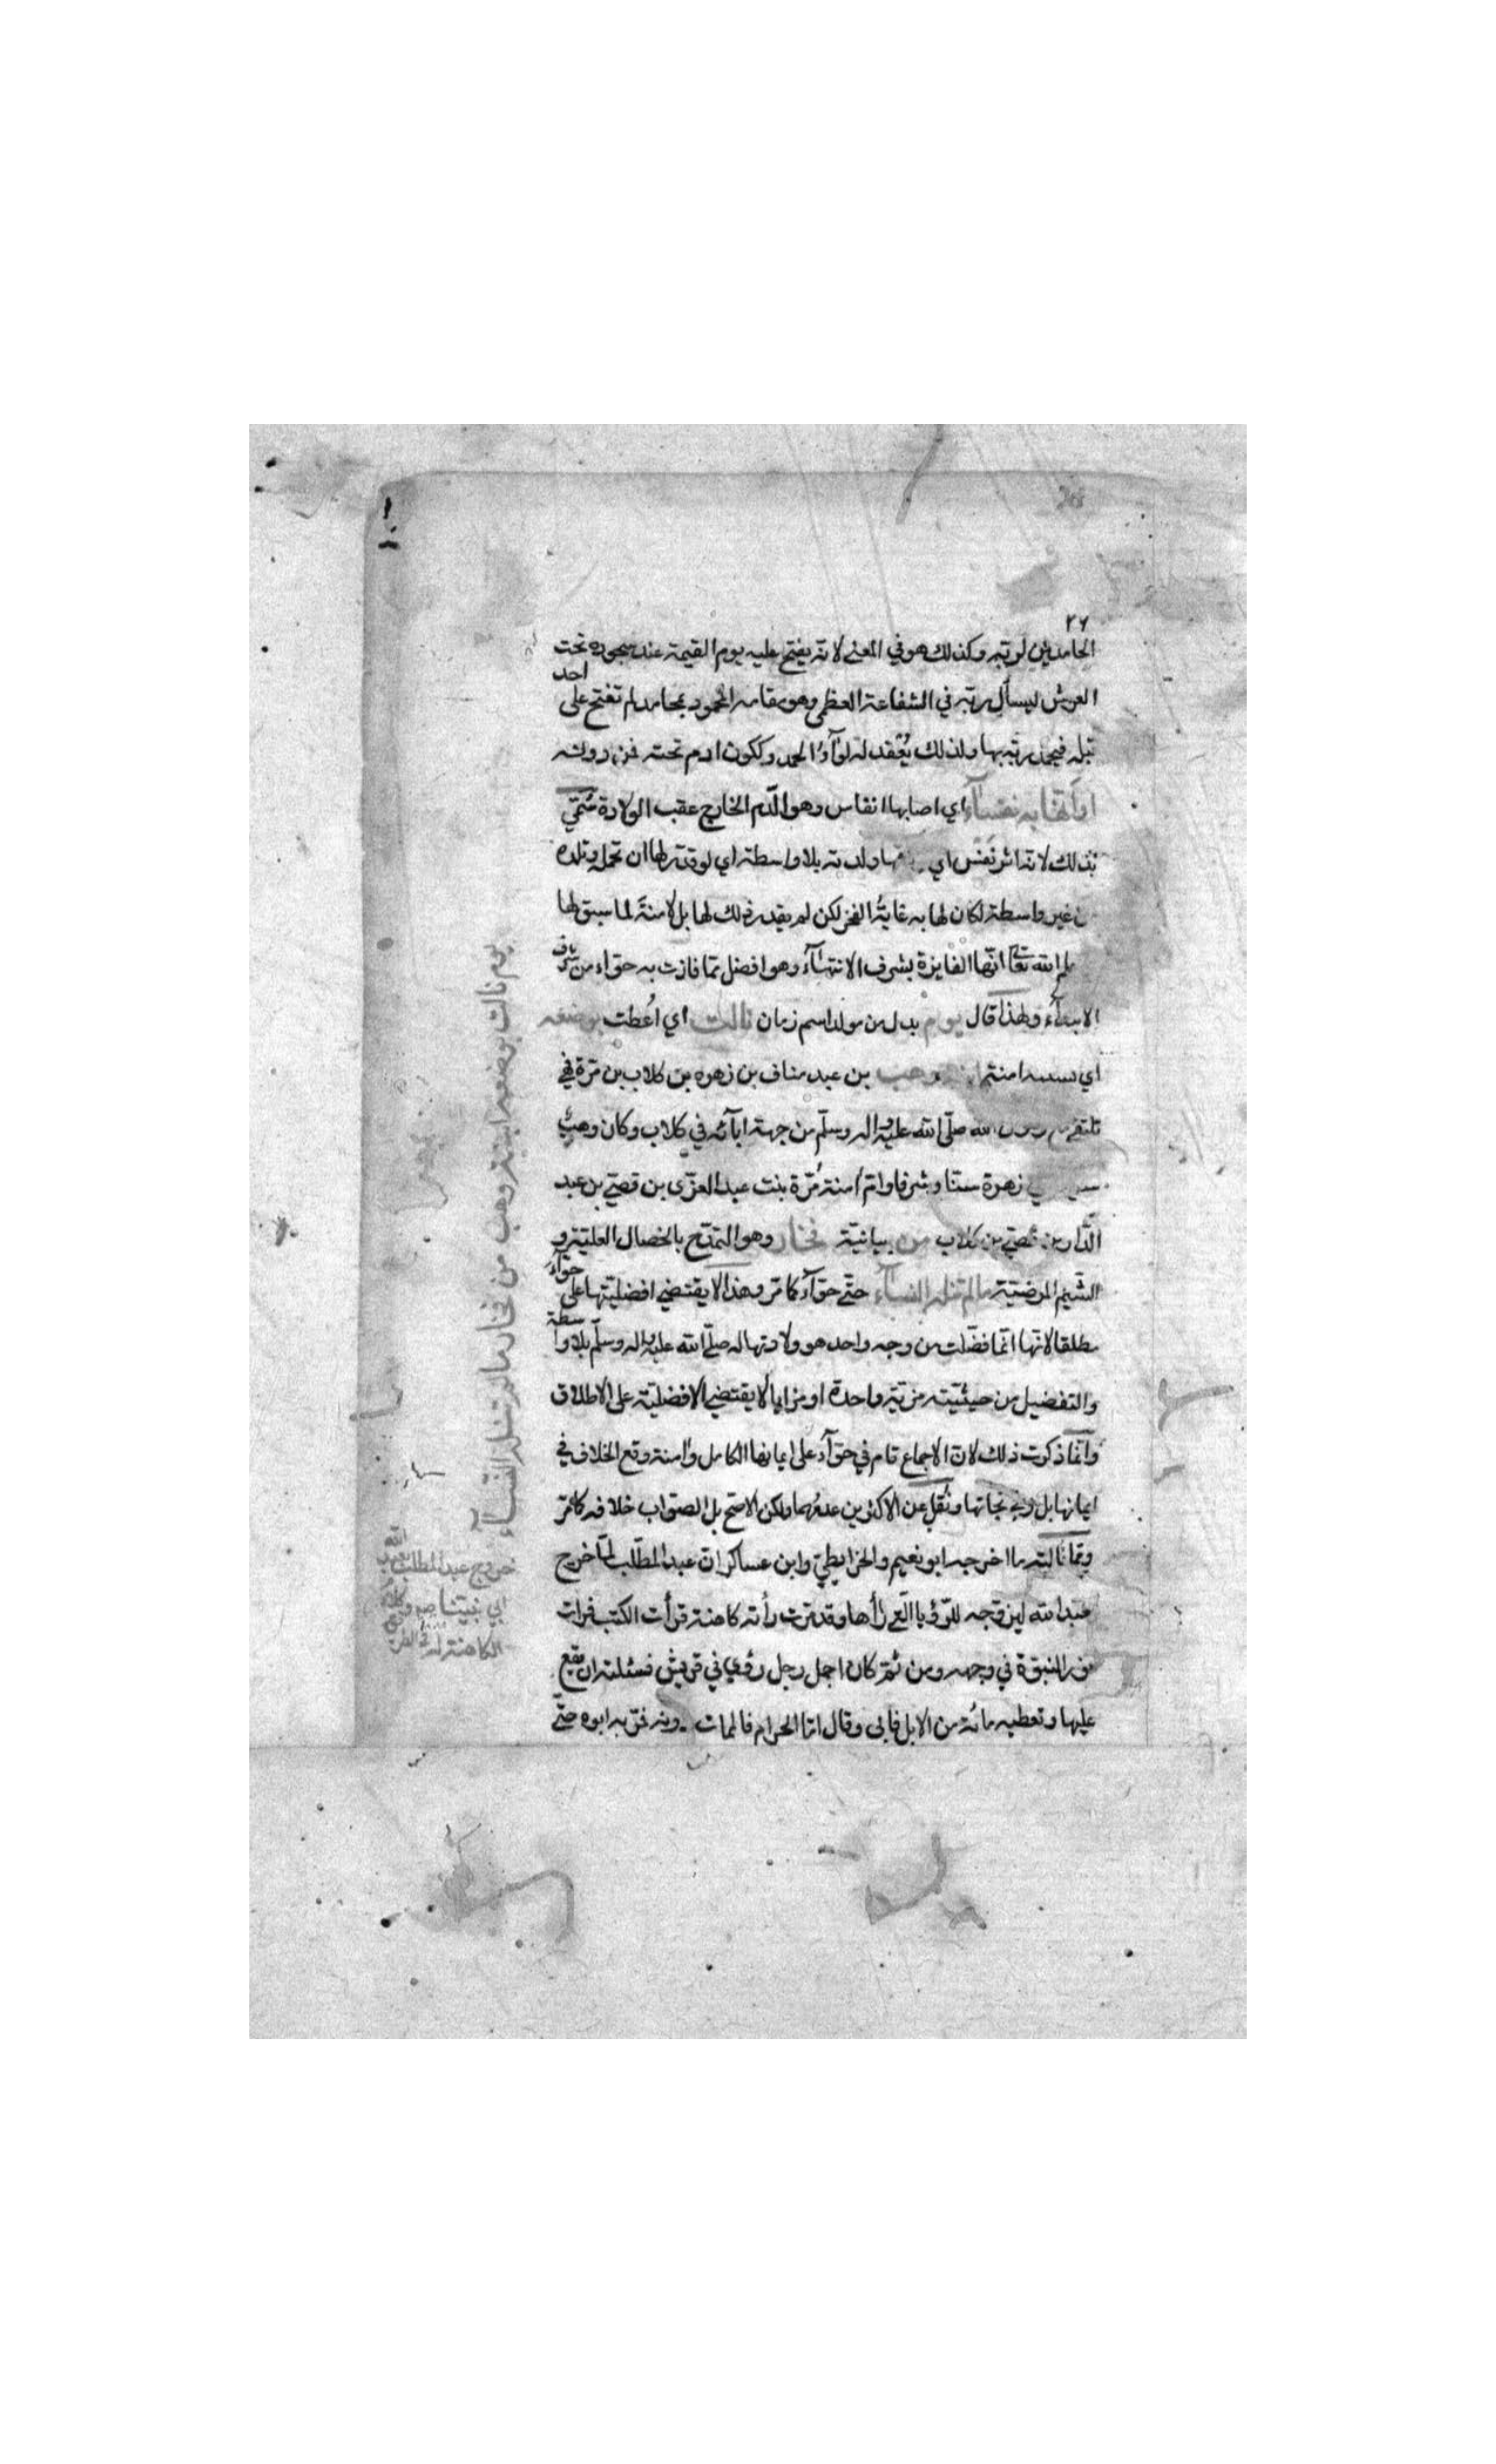 ٢٦
الحامدين لربّه وكذلك هو في المعنى لانّه يفتح عليه يوم القيمة عند سجوده تحت
العرش ليسأل ربّه في الشفاعة العظمى وهو مقامه المحمود بمحامد لم تفتح على احد
قبله فيحمد ربّه بها ولذلك يُعقد له لوآءُ الحمد ويكون ادم تحته فمن دونه
او أنّها به نفسآء اي اصابها انفاس وهو الدّم الخارج عقب الولادة سُمّي
بذلك لانّه اثر نفس اي ولدته بلا واسطة اي لو قدّر لها ان تحمل وتلده
من غير واسطة لكان لها به غايةُ الفخر لكن لم يقدر ذلك لها بل لامنةَ لما سبق لها
الله تعالى انّها الفايزة بشرف الانتهآء وهو افضل ممّا فازت به حوّاء من شرف
الابتدآء ولهذا قال يوم بدل من مولد اسم زمان نالت اي اُعطت بوضعه
اي بسببه امنة وهب بن عبد مناف بن زهره بن كلاب بن مرّة في
صلّى الله عليه واله وسلّم من جهة ابآئه في كلاب وكان وهب
زهرة سنّا وشرفا وامّ امنة مُرّة بنت عبد العزّى بن قصيّ بن عبد
الدّار بن قصيّ بن كلاب من بيانيّة فخار وهو التمدّح بالخصال العليّة و
الشّيم المرضيّة مالم تنله النسآء حتّى حوّآء كما مر وهذا لا يقتضي افضليّتها على حوّآء
مطلقا لانّها انّما فضّلت من وجه واحد هو ولادتها له صلّى الله عليه واله وسلّم بلا واسطة
والتفضيل من حيثيّته مزيّة واحدة او مزايا لا يقتضي الافضليّة على الاطلاق
وانّما ذكرت ذلك لانّ الاجماع تام في حوّآء على ايمانها الكامل وامنة وقع الخلاف في
ايمانها بل وفي نجاتها ونُقل عن الاكثرين عدمهما ولكن الاصح بل الصّواب خلافه كما مرّ
وممّا نالته ما اخرجه ابو نعيم والخرايطيّ وابن عساكر انّ عبد المطّلب لمّا خرج
بعبد الله ليزوّجه للرّؤيا الّتي رأها وقد مرت رأته كاهنة قرأت الكتب فرات
نور النبوّة في وجهه ومن ثمّ كان اجمل رجل رؤي في قريش فسئلته ان يقع
عليها وتعطيه مائة من الابل فابى وقال امّا الحرام فالممات دونه فمرّ به ابوه حتّى
يوم نالت بوضعه ابنة وهب من فخار مالم تنله النسآء
خروج عبد المطلب بعبد الله
الكاهنة